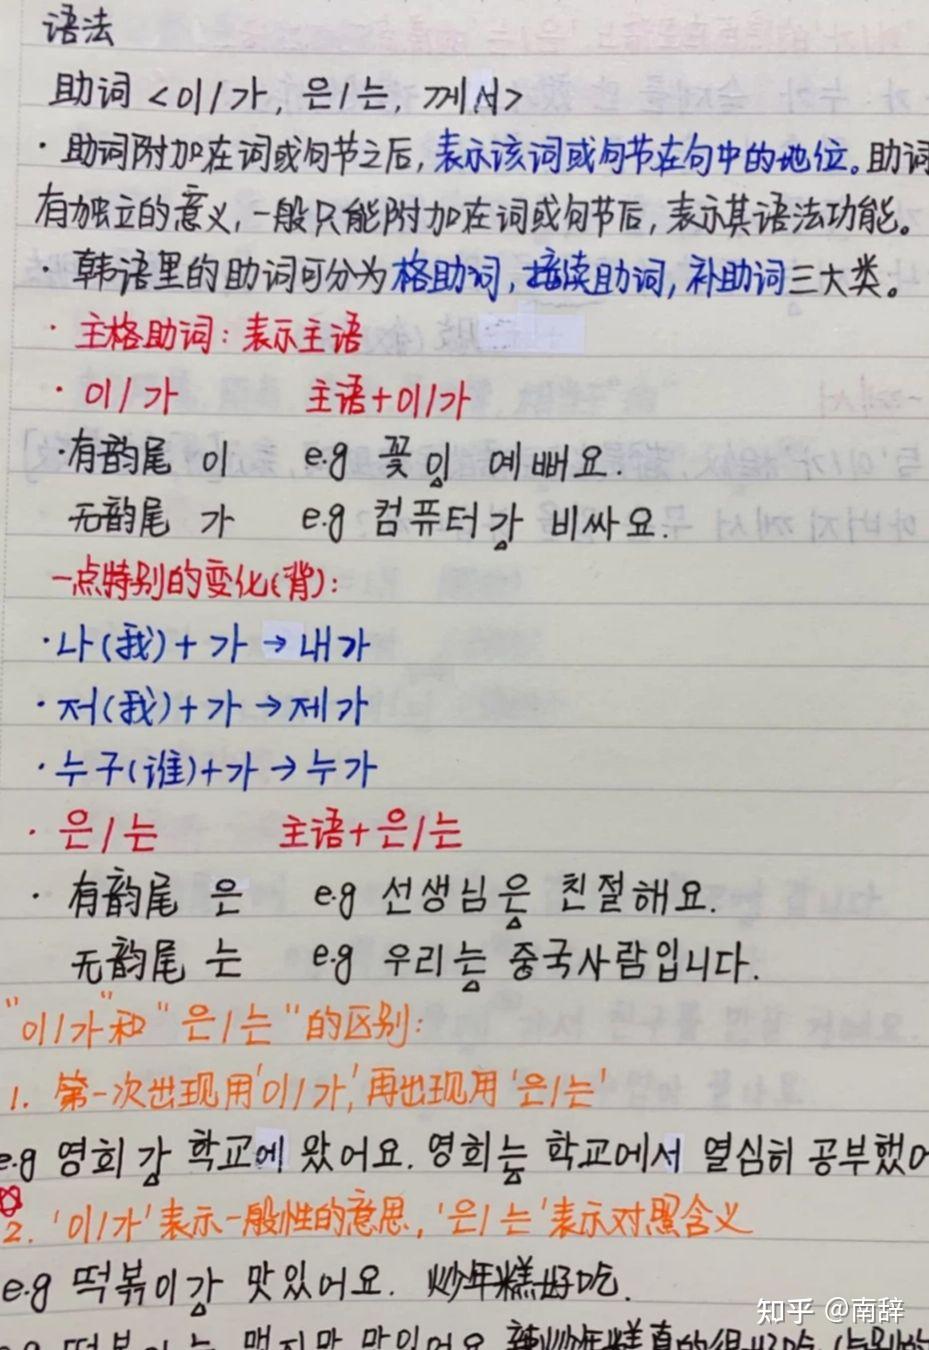 语法
助词 <이/가, 은/는, 께서>
· 助词附加在词或句节之后, 表示该词或句节在句中的地位。助词
有独立的意义, 一般只能附加在词或句节后, 表示其语法功能。
· 韩语里的助词可分为格助词, 接续助词, 补助词三大类。
· 主格助词: 表示主语
· 이/가 主语+이/가
·有韵尾 이 e.g 꽃이 예뻐요.
无韵尾 가 e.g 컴퓨터가 비싸요.
一点特别的变化(背):
·나(我)+가→내가
·저(我)+가→제가
·누구(谁)+가→누가
·은/는 主语+은/는
·有韵尾 은 e.g 선생님은 친절해요.
无韵尾 는 e.g 우리는 중국사람입니다.
"이/가"和"은/는"的区别:
1. 第一次出现用'이/가', 再出现用'은/는'
e.g 영희가 학교에 왔어요. 영희는 학교에서 열심히 공부했어
2. '이/가'表示一般性的意思, '은/는'表示对照含义
e.g 떡볶이가 맛있어요. 炒年糕好吃.
知乎 @南辞